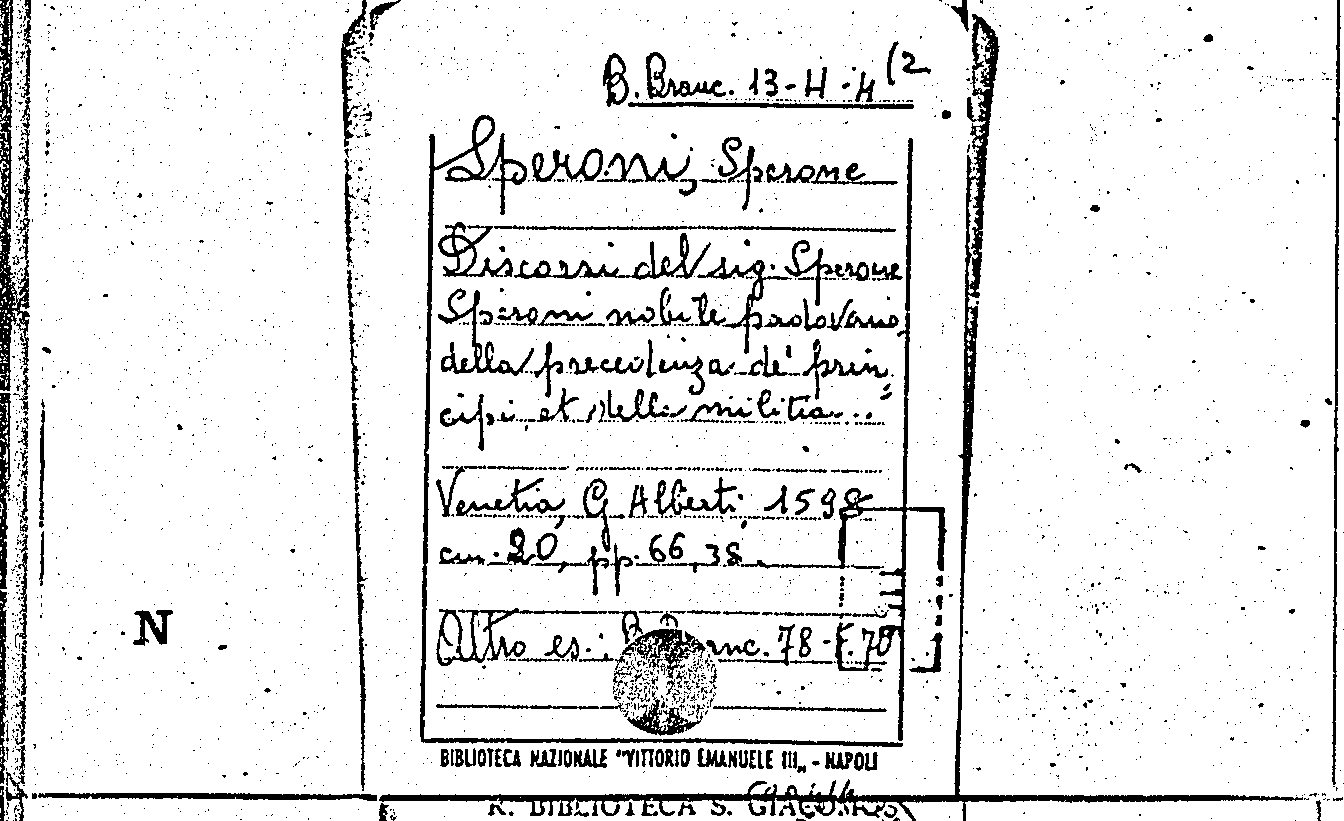 B. Branc. 13-H-4 (2
Speroni, Sperone
Discorsi del sig. Sperone
Speroni nobile padovano,
della precedenza de' prin=
cipi, et della militia...
Venetia, G. Alberti, 1598
cm. 20, pp. 66, 38.
Altro es.: B. Branc. 78-F.70
N
BIBLIOTECA NAZIONALE "VITTORIO EMANUELE III„ - NAPOLI
R. BIBLIOTECA S. GIACOMO